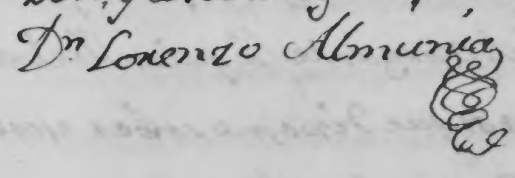 Dn Lorenzo Almunia